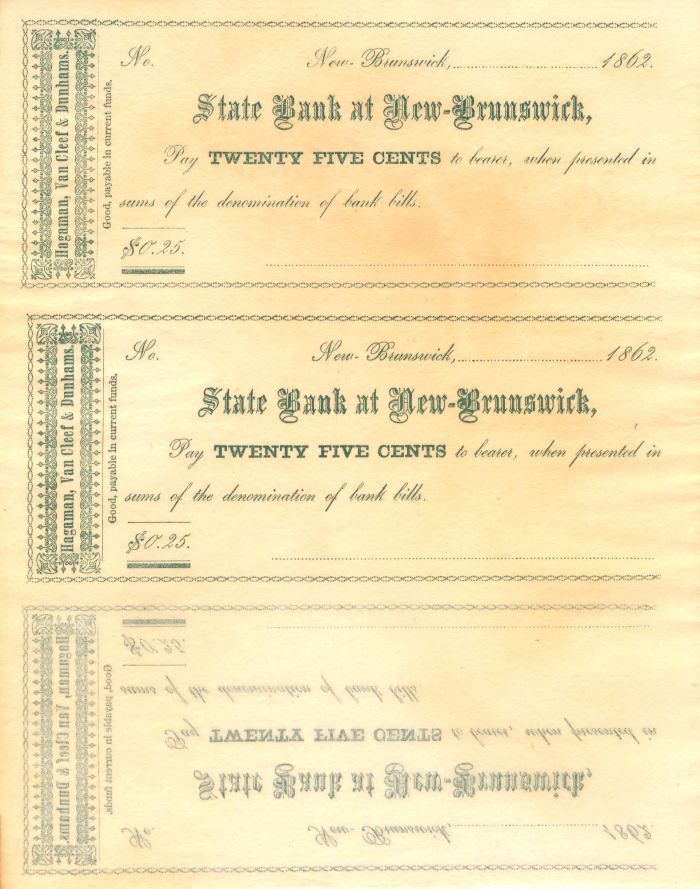 Hagaman, Van Cleef & Dunhams.
Good, payable in current funds.
No. New-Brunswick, 1862.
State Bank at New-Brunswick,
Pay TWENTY FIVE CENTS to bearer, when presented in
sums of the denomination of bank bills.
$0.25.
Hagaman, Van Cleef & Dunhams.
Good, payable in current funds.
No. New-Brunswick, 1862.
State Bank at New-Brunswick,
Pay TWENTY FIVE CENTS to bearer, when presented in
sums of the denomination of bank bills.
$0.25.
Hagaman, Van Cleef & Dunhams.
Good, payable in current funds.
$0.25.
sums of the denomination of bank bills.
Pay TWENTY FIVE CENTS to bearer, when presented in
State Bank at New-Brunswick,
No. New-Brunswick, 1862.